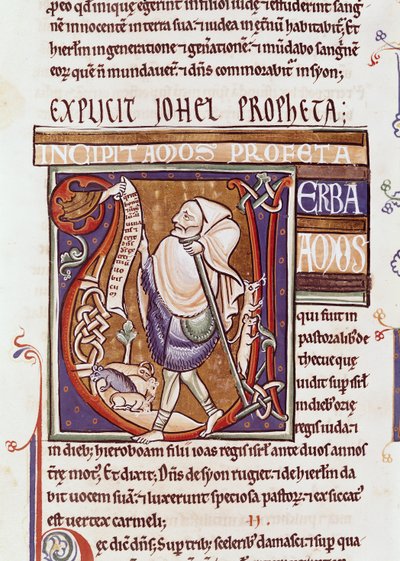 eo qđ iniquę egerint in filios iudę & effuderint sang
nē innocentē in terra sua: & iudea in ęternū habitabit̄ &
hierłm in generatione & gn̄atione: & mūdabo sangnē
eoꝝ quē n̄ mundauerā: & dn̄s commorabit̄ in syon;
EXPLICIT IOHEL PROPHETA;
INCIPIT AMOS PROFETA
VERBA
AMOS
qui fuit in
pastoralib; de
thecue que
uidit sup̄ isrł
in dieb; ozię
regis iuda: &
in dieb; hieroboam filii ioas regis isrł ante duos annos
t̄rę mot'. Et dixit; Dn̄s de syon rugiet: & de hierłm da
bit uocem suā: & luxerunt speciosa pastoꝝ: & exsiccat'
est uertex carmeli; II.
Hec dic̄ dn̄s; Sup̄ trib; scelerib; damasci: & sup̄ qua